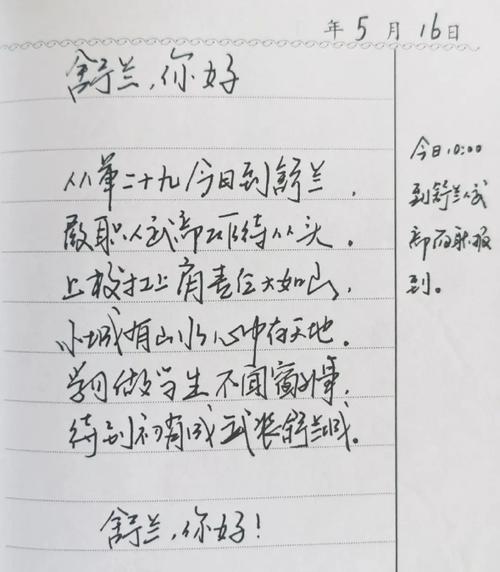 年5月16日
舒兰,你好
从军二十九今日到舒兰,
履职人武部万事待从头。
上校扛上肩责任大如山,
小城有山水心中有天地。
学习做学生不闻窗外事,
待到初有成武装舒兰城。
舒兰,你好!
今日10:00
到舒兰人武
部履职报
到。